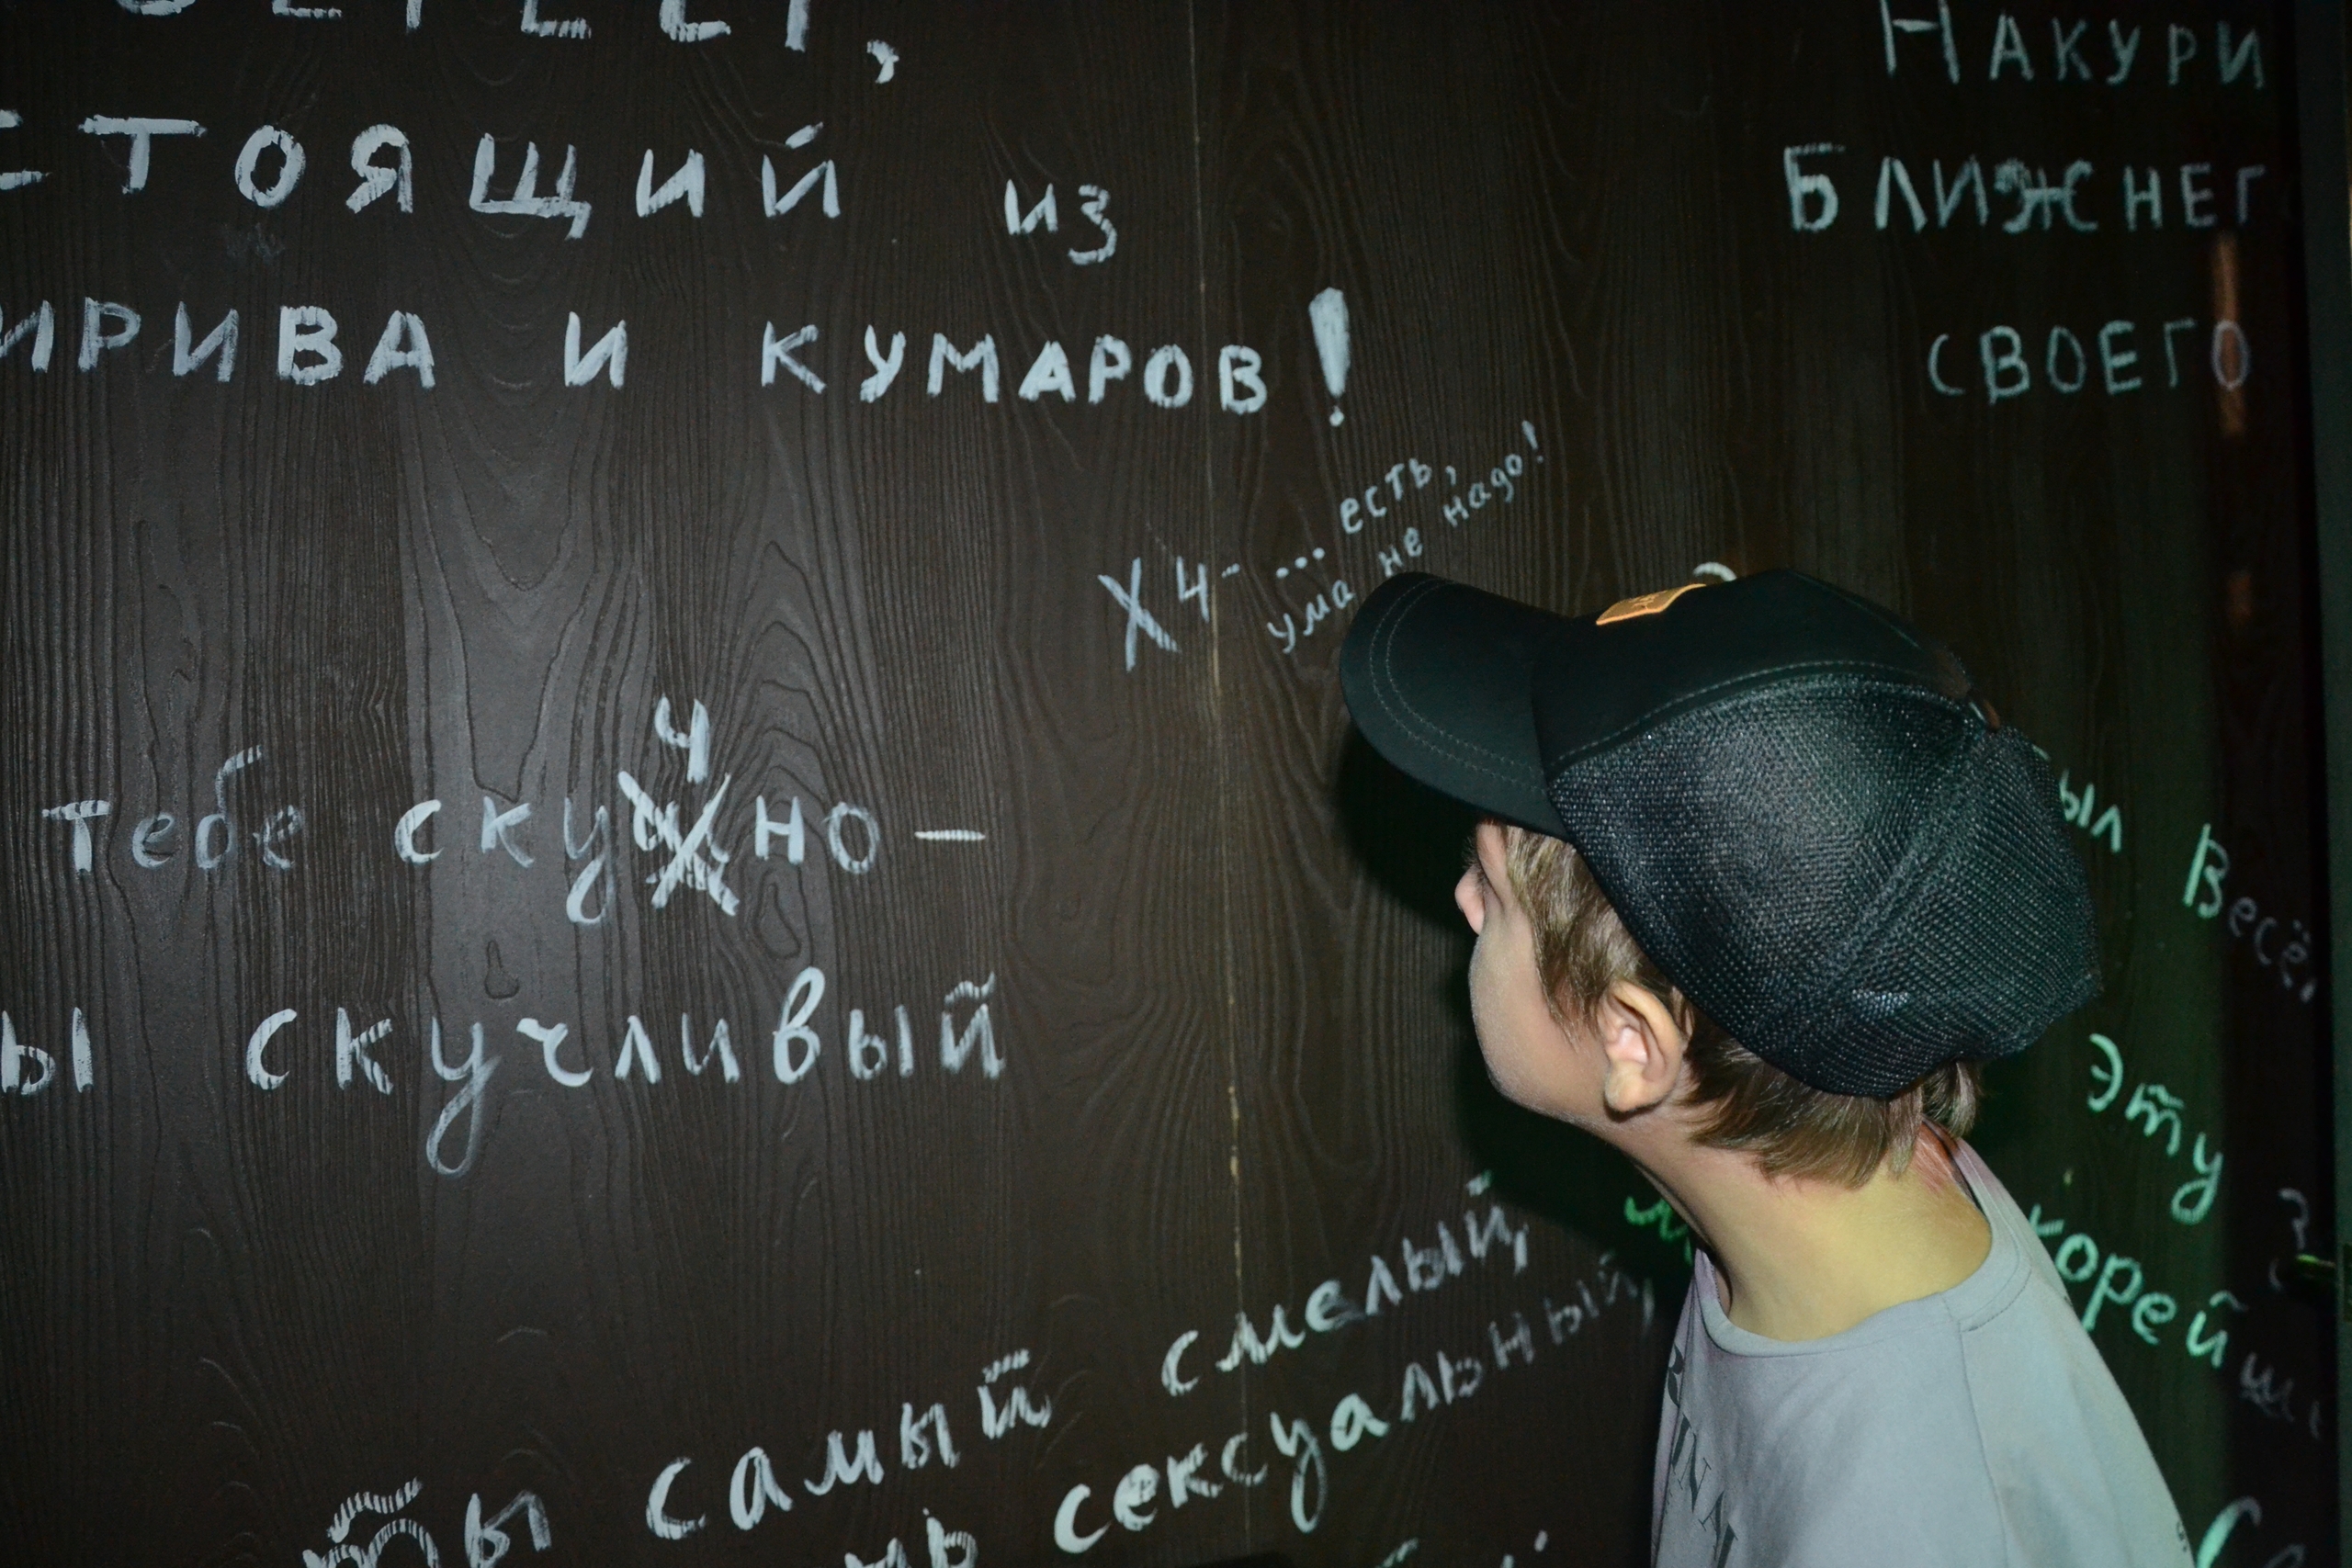 СТОЯЩИЙ ИЗ
ИРИВА И КУМАРОВ!
НАКУРИ
БЛИЖНЕГ
СВОЕГО
Х4-... есть,
ума не надо!
тебе скучно —
ы скучливый
ыл Весё
эту
корей
Ты самый смелый,
нь сексуальный,